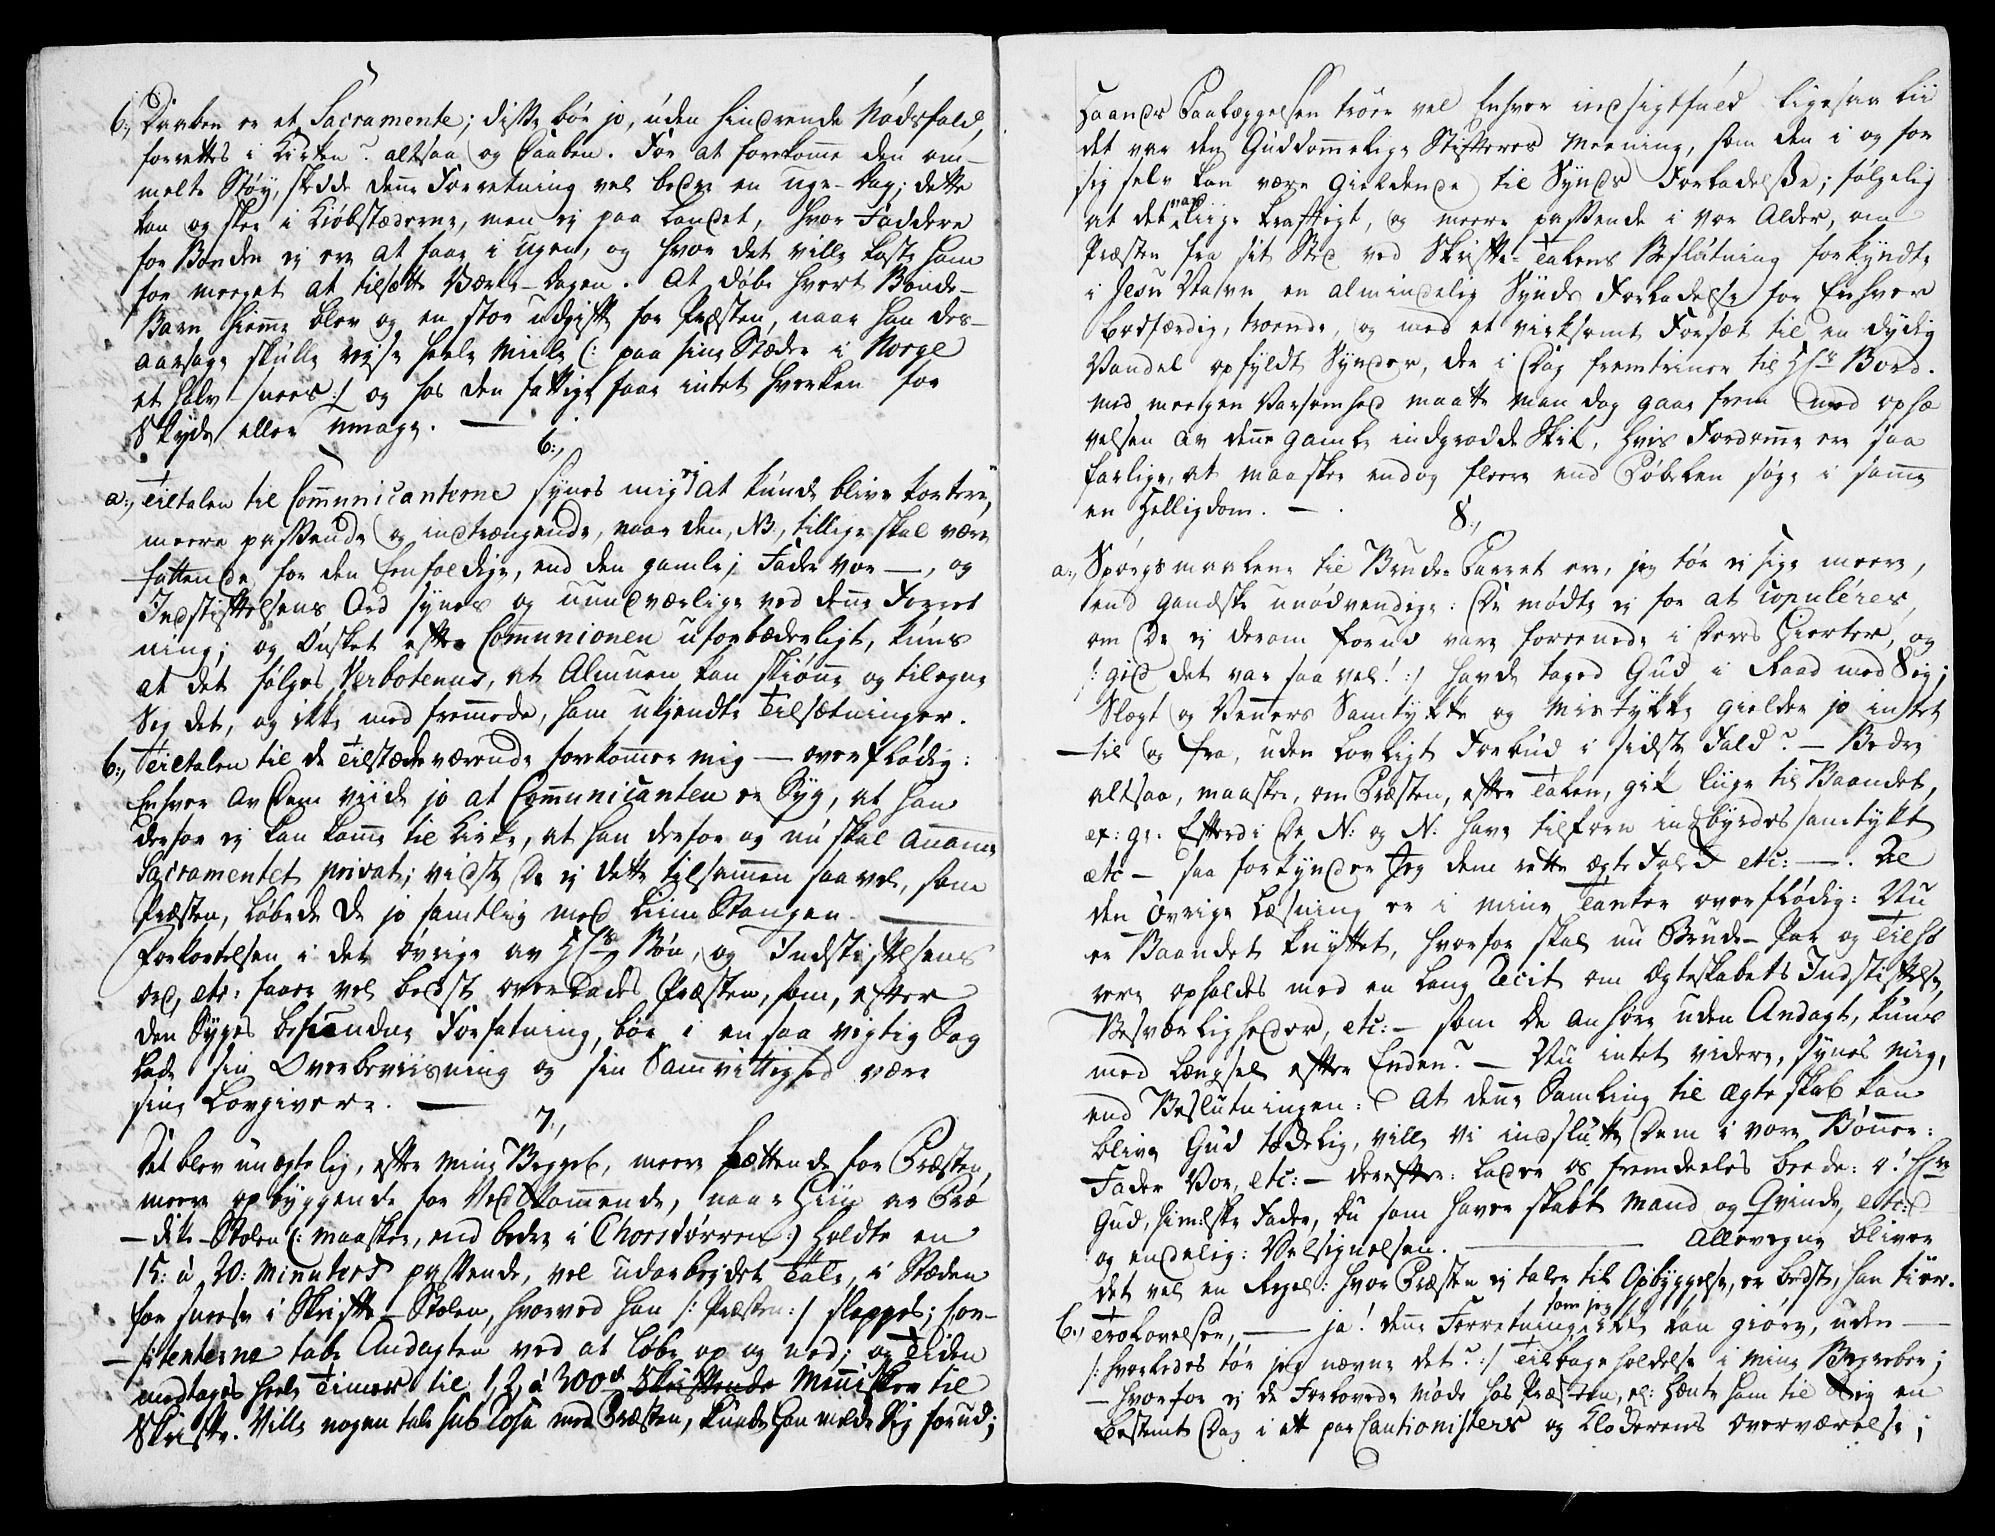 b., Daaben er et Sacramente; disse bör jo, uden hindrende Nödsfald,
forrettes i Kirken? altsaa og Daaben. For at forekomme den om-
melte Støy, skede denne Forretning vel bedre en uge-Dag; dette
kan og skee i Kiöbstæderne, men ej paa Landet, hvor Faddere
for Bonden ej ere at faae i Ugen, og hvor det ville koste ham
for meeget at tilsætte Værke-Dagen. At döbe hvert Bonde-
Barn hiemme blev og en stor udgift for Præsten, naar han des-
aarsage skulle reise heele Miile (: paa sine Stæder i Norge
et halv snees :) og hos den fattige faae intet hverken for
Skyds eller Umage. —
6.,
a., Tiltalen til Communicanterne synes mig ej at kunde blive kortere,
meere passende og indtrængende, naar den, NB, tillige skal være
fattende for den Eenfoldige, end den gamle; Fader vor —, og
Indstiftelsens Ord synes og uundværlige ved denne Forret
ning; og Önsket efter Communionen uforbederligt, kuns
at det fölges Verbotenus, at Almuen kan skiönne og tilegne
Sig det, og ikke med fremmede, ham ukjendte Tilsætninger.
b., Tiltalen til de Tilstædeværende forekommer mig — overflödig:
Enhver av Dem viide jo at Communicanten er Syg, at han
derfor ej kan komme til Kirke, at han derfor og nu skal annamme
Sacramentet privat; vidste De ej dette tilsammen saavel, som
Præsten, löbede de jo samtlig med Liim Stangen. —
Forkortelsen i det övrige av Hrs Bön, og Indstiftelsens
Ord, etc: faaer vel bedst overlades Præsten, som, efter
den Syges befundne Forfatning, bör i en saa vigtig Sag
lade sin Overbeviisning og sin Samvittighed være
sine Lovgivere. —
7.,
Det blev unægtelig, efter mine Begreb, meere lættende for Præsten,
meere opbyggende for Vedkommende, naar Hiin av Præ
dike-Stolen (: maaskee, end bedre i Chorsdörren :) holdte en
15: à 20: Minuters passende, vel udarbejdet Tale, i Stæden
for sneese i Skrifte-Stolen, hvorved han /: Præsten :/ slappes; Con-
fitenterne tabe Andagten ved at löbe op og ned; og Tiden
medtages heele Timer til 1, 2, à 300de Skriftende Mennisker til
Skrifte. Ville nogen tale sub Rosa med Præsten, kunde han melde Sig forud;
Haands Paalæggelsen troer vel Enhver indsigtfuld ligesaa lii
det var den Guddommelige Stifteres Meening, som den i og for
sig selv kan være gieldende til Synds Forladelse; fölgelig
at det var liige kraftigt, og meere passende i vor Alder, om
Præsten fra sit Sted ved Skrifte-Talens Beslutning forkyndte
i Jesu Navn en almindelig Synds Forladelse for Enhver
bodfærdig, troende, og med et virksomt Forsæt til en dydig
Vandel opfyldt Synder, der i Dag fremtriner til Hrs Bord.
Med meegen Varsomhed maatte man dog gaae frem med ophæ
velsen av denne gamle indgroede Skik, hvis Fordomme ere saa
farlige, at maaskee endog fleere end Pöbelen söge i samme
en Helligdom. —
8.,
a., Spörgsmaalene til Brude-Parret ere, jeg tör ej sige meere,
end gandske unödvendige: De mödte ej for at copuleres,
om De ej derom forud vare foreenede i Deres Hierter, og
/: gid det var saa vel! :/ havde taged Gud i Raad med Sig;
Slægt og Venners Samtykke og Mistykke gielder jo intet
til og fra, uden lovligt Forbud i sidste Fald? — Bedre
altsaa, maaskee, om Præsten, efter Talen, gik liige til Baandet,
ex: gr. Efterdi De N: og N: have tilforn indbyrdes samtykt
etc — saa forkynder Jeg dem rette ægte Folk etc: —. Al
den övrige Læsning er i mine Tanker overflödig: Nu
er Baandet knyttet, hvorfor skal nu Brude-Par og Tilhö
rere opholdes med en lang Recit om Ægteskabets Indstiftelse,
Besværligheder, etc: — som de anhöre uden Andagt, kuns
med Længsel efter Enden? — Nu intet videre, synes mig,
end Beslutningen: At denne Samling til Ægteskab kan
blive Gud tækkelig, ville vi indslutte Dem i vore Bönner:
Fader Vor, etc: — derefter: lader os fremdeeles beede: O! Hre
Gud, himmelske Fader, du som haver skabt Mand og Qvinde, etc:
og endelig: Velsignelsen. — Allevegne bliver
det vel en Regel: hvor Præsten ej taler til Opbyggelse, er bedst, han tier.
b., Trolovelser, — ja! denne Forretning som jeg ikke kan giöre, uden —
/: hvorledes tör jeg nævne det? :/ Tilbageholdelse i mine Begreber;
— hvorfor ej de Forlovede möde hos Præsten, el: hente ham til Sig en
bestemt Dag i ett par Cautionisters og Klokerens Overværelse;